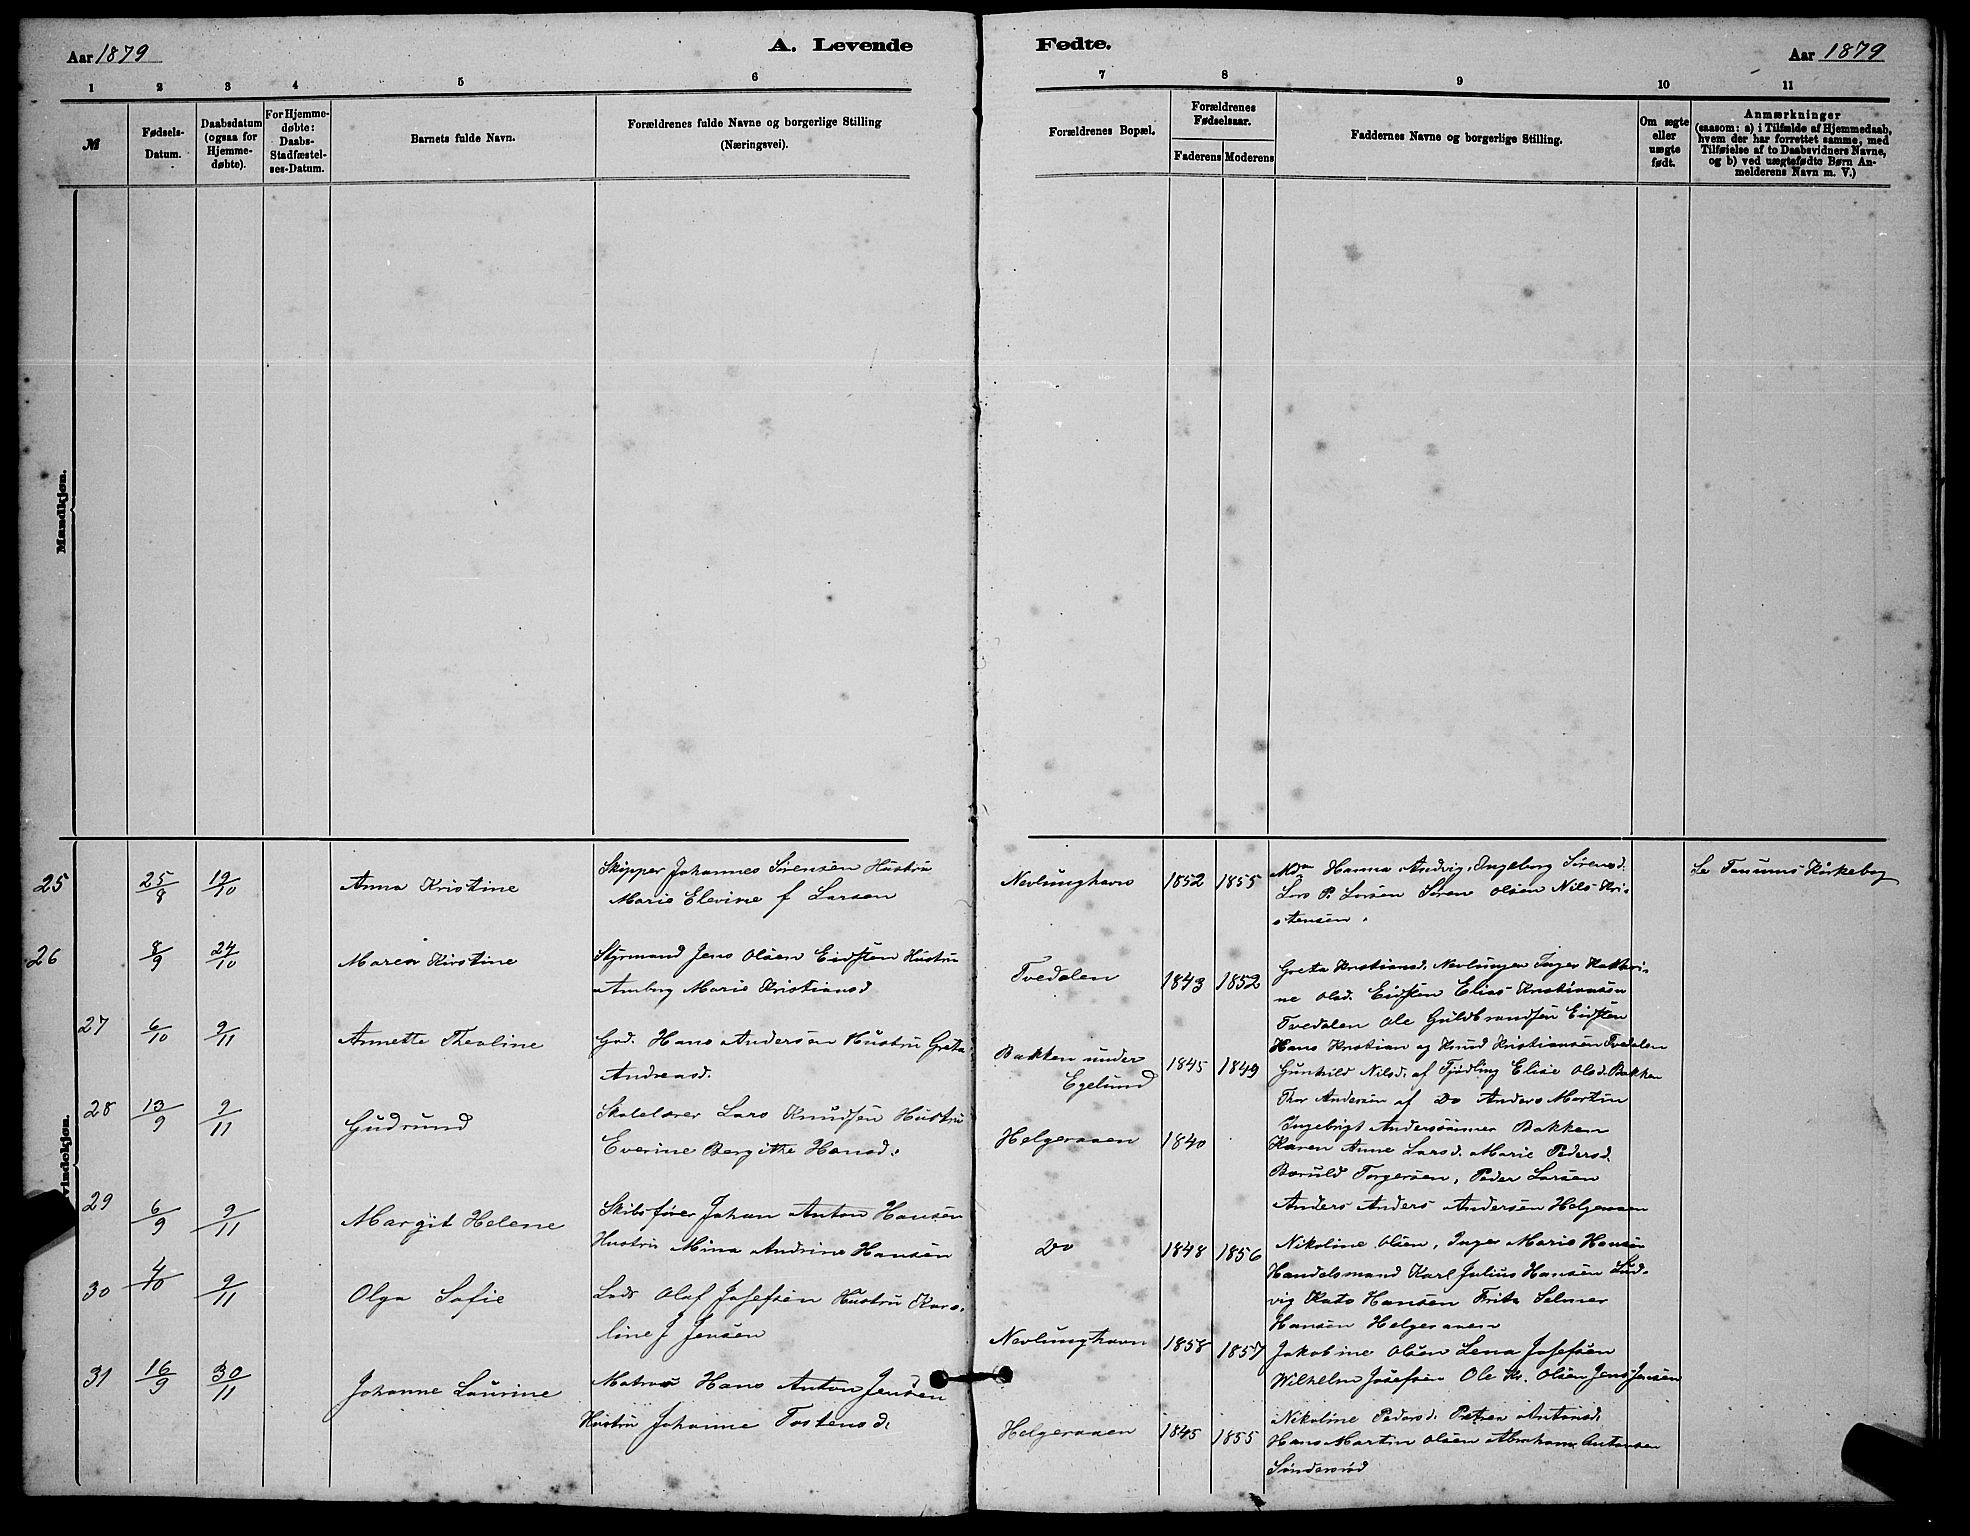 Aar 1879
A. Levende
Fødte.
Aar 1879
1 2 3 4 5 6 7 8 9 10 11
№
Fødsels-
Datum.
Daabsdatum
(ogsaa for
Hjemme-
døbte).
For Hjemme-
døbte:
Daabs-
Stadfæstel-
ses-Datum.
Barnets fulde Navn.
Forældrenes fulde Navne og borgerlige Stilling
(Næringsvei).
Forældrenes Bopæl.
Forældrenes
Fødselsaar.
Faderens
Moderens
Faddernes Navne og borgerlige Stilling.
Om ægte
eller
uægte
født.
Anmærkninger
(saasom: a) i Tilfælde af Hjemmedaab,
hvem der har forrettet samme, med
Tilføielse af to Daabsvidners Navne,
og b) ved uægtefødte Børn An-
melderens Navn m. V.)
Mandkjøn.
Kvindekjøn.
25
25/8
19/10
Anna Kristine
Skipper Johannes Sørensen Hustru
Marie Elevine f Larsen
Nevlunghavn
1852
1855
Hanna Andvig, Ingeborg Sørensd.
Lars P. Larsen Søren Olsen Nils Kri-
stensen.
Se Tanums Kirkebog
26
8/9
24/10
Maren Kirstine
Styrmand Jens Olsen Eidsten Hustru
Amborg Marie Kristiansd
Tvedalen
1843
1852
Greta Kristiansd. Nevlungen Inger Kathri-
ne Olsd. Eidsten Elias Kristiansen
Tvedalen Ole Guldbrandsen Eidsten
Hans Kristian og Knud Kristiansen Tvedalen
27
6/10
9/11
Annette Theoline
Gød. Hans Andersen Hustru Greta
Andreasd.
Bakken under
Egelund
1845
1849
Gunhild Nilsd. af Tjødling Elise Olsd. Bakken
Thor Andersen af Do Anders Martin
Ingebrigt Anderssønner Bakken
28
13/9
9/11
Gudrund
Skolelærer Lars Knudsen Hustru
Everine Bergitte Hansd.
Helgeraaen
1840
Karen Anne Larsd. Marie Pedersd.
Torgersen, Peder Larsen
Anders Anders Andersen Helgeraaen
29
6/9
9/11
Margit Helene
Skibsfører Johan Anton Hansen
Hustru Mina Andrine Hansen
Do
1848
1856
Nikoline Olsen, Inger Marie Hansen
Handelsmand Karl Julius Hansen Lud-
vig Kato Hansen Frits Selmer
Hansen Helgeraaen
30
4/10
9/11
Olga Sofie
Lods Olaf Josefsen Hustru Karo-
line J Jensen
Nevlunghavn
1858
1857
Jakobine Olsen Lena Josefsen
Wilhelm Josefsen Ole Kr. Olsen Jens Jensen
31
16/9
30/11
Johanne Laurine
Matros Hans Anton Jensen
Hustru Johanne Tostensd.
Helgeraaen
1845
1855
Nikoline Pedersd. Petrea Antonsd.
Hans Martin Olsen Abraham Antonsen
Søndersrød